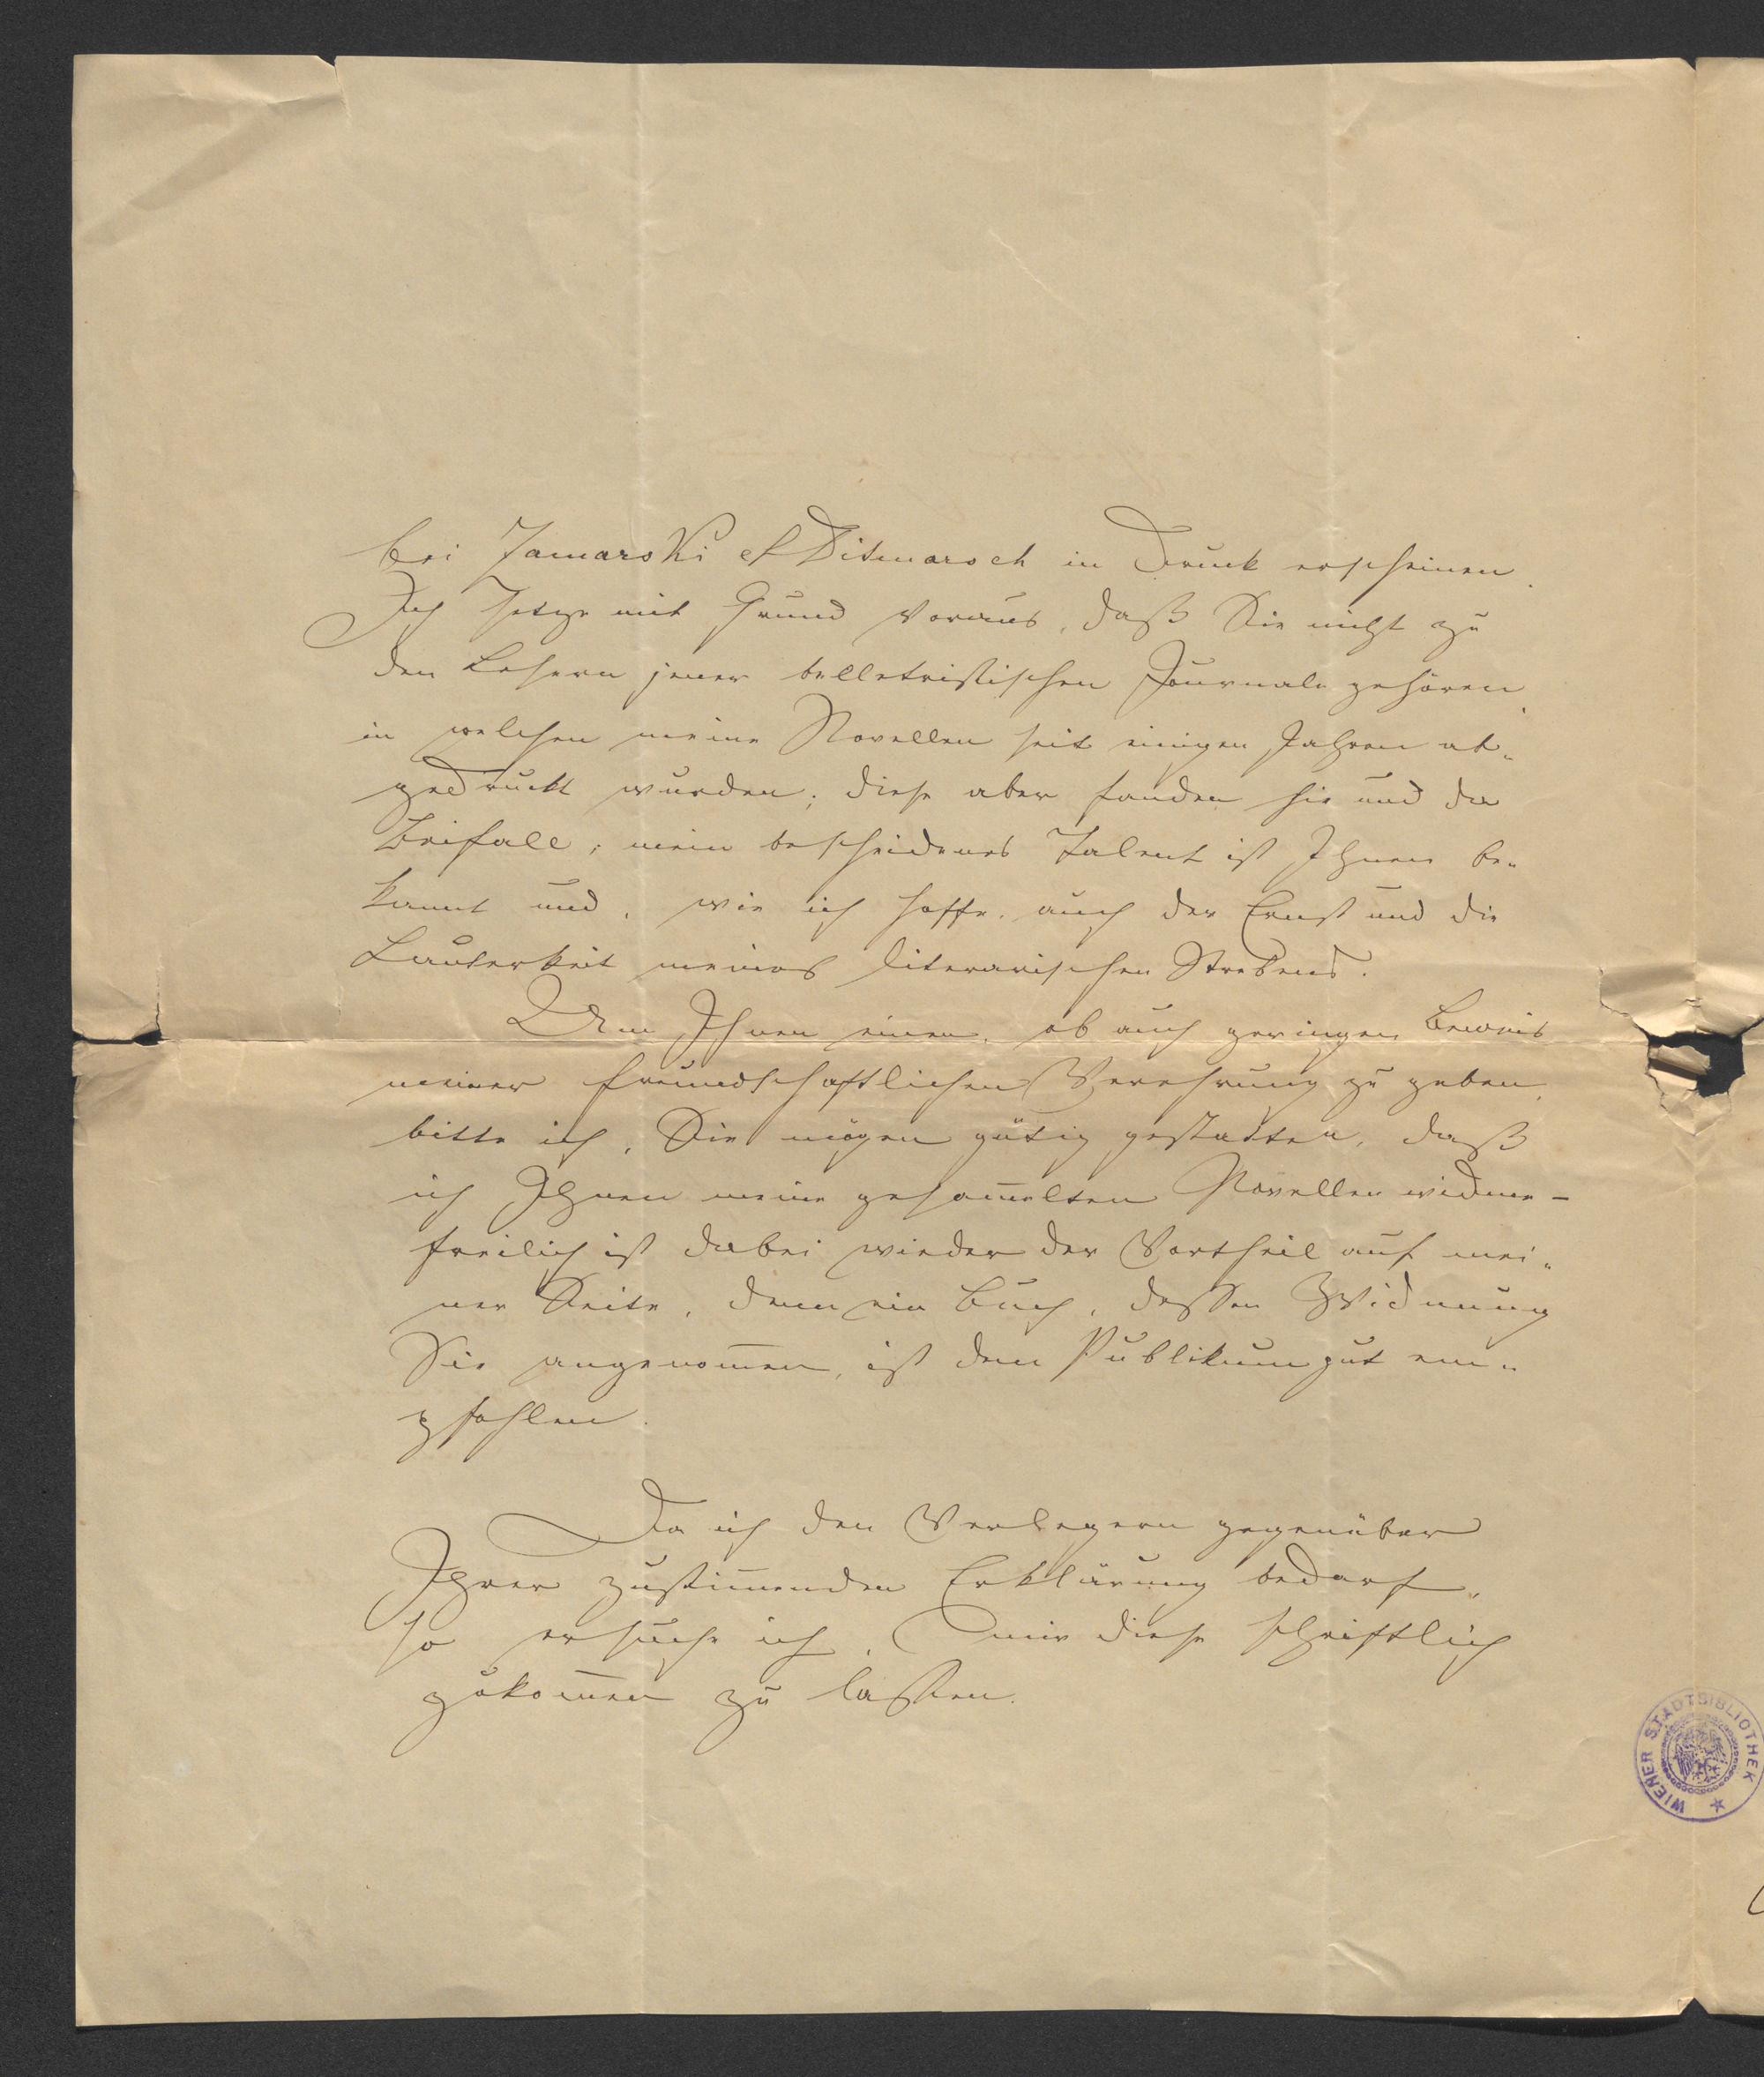 bei Jamarski et Ditmarsch in Druck erscheinen.
Ich setze mit Grund voraus, daß Sie nicht zu
den Lesern jener belletristischen Journale gehören,
in welchen meine Novellen seit einigen Jahren ab„
gedruckt wurden; diese aber fanden hie und da
Beifall; mein bescheidenes Talent ist Ihnen be„
kannt und, wie ich hoffe, auch der Ernst und die
Lauterkeit meines literarischen Strebens.
Um Ihnen einen, ob auch geringen Beweis
meiner freundschaftlichen Verehrung zu geben,
bitte ich, Sie mögen gütig gestatten, daß
ich Ihnen meine gesam̅elten Novellen widme –
freilich ist dabei wieder der Vortheil auf mei„
ner Seite, denn ein Buch, dessen Widmung
Sie angenom̅en, ist dem Publikum gut em„
pfohlen.
Da ich den Verlegern gegenüber
Ihrer zustim̅enden Erklärung bedarf,
so ersuche ich, mir diese schriftlich
zukom̅en zu lassen.
WIENER STADTBIBLIOTHEK